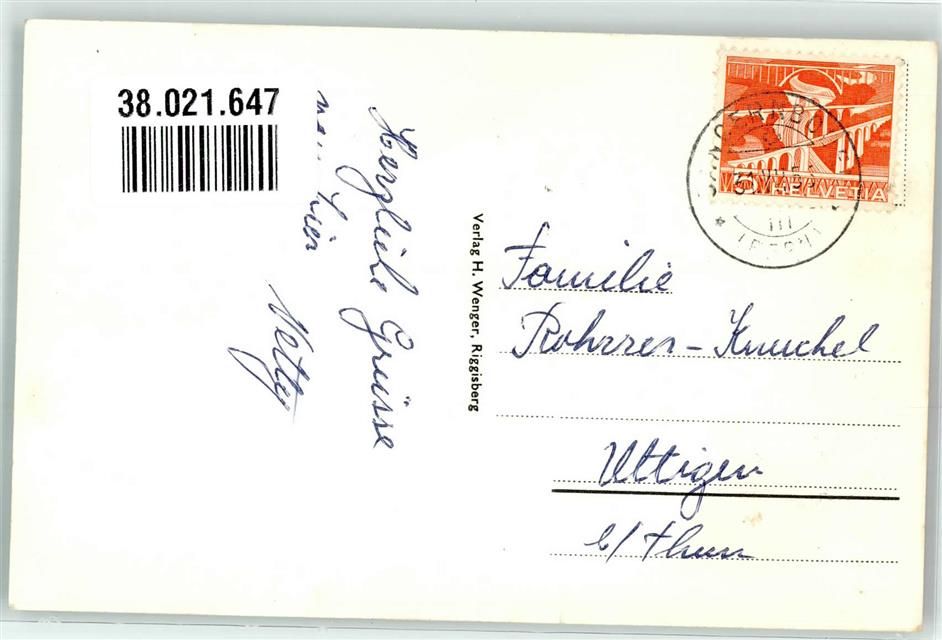 38.021.647
Herzliche Grüsse
von hier
Verlag H. Wenger, Riggisberg
HELVETIA
Familie
Rohrer-Knuchel
Uttigen
b/Thun